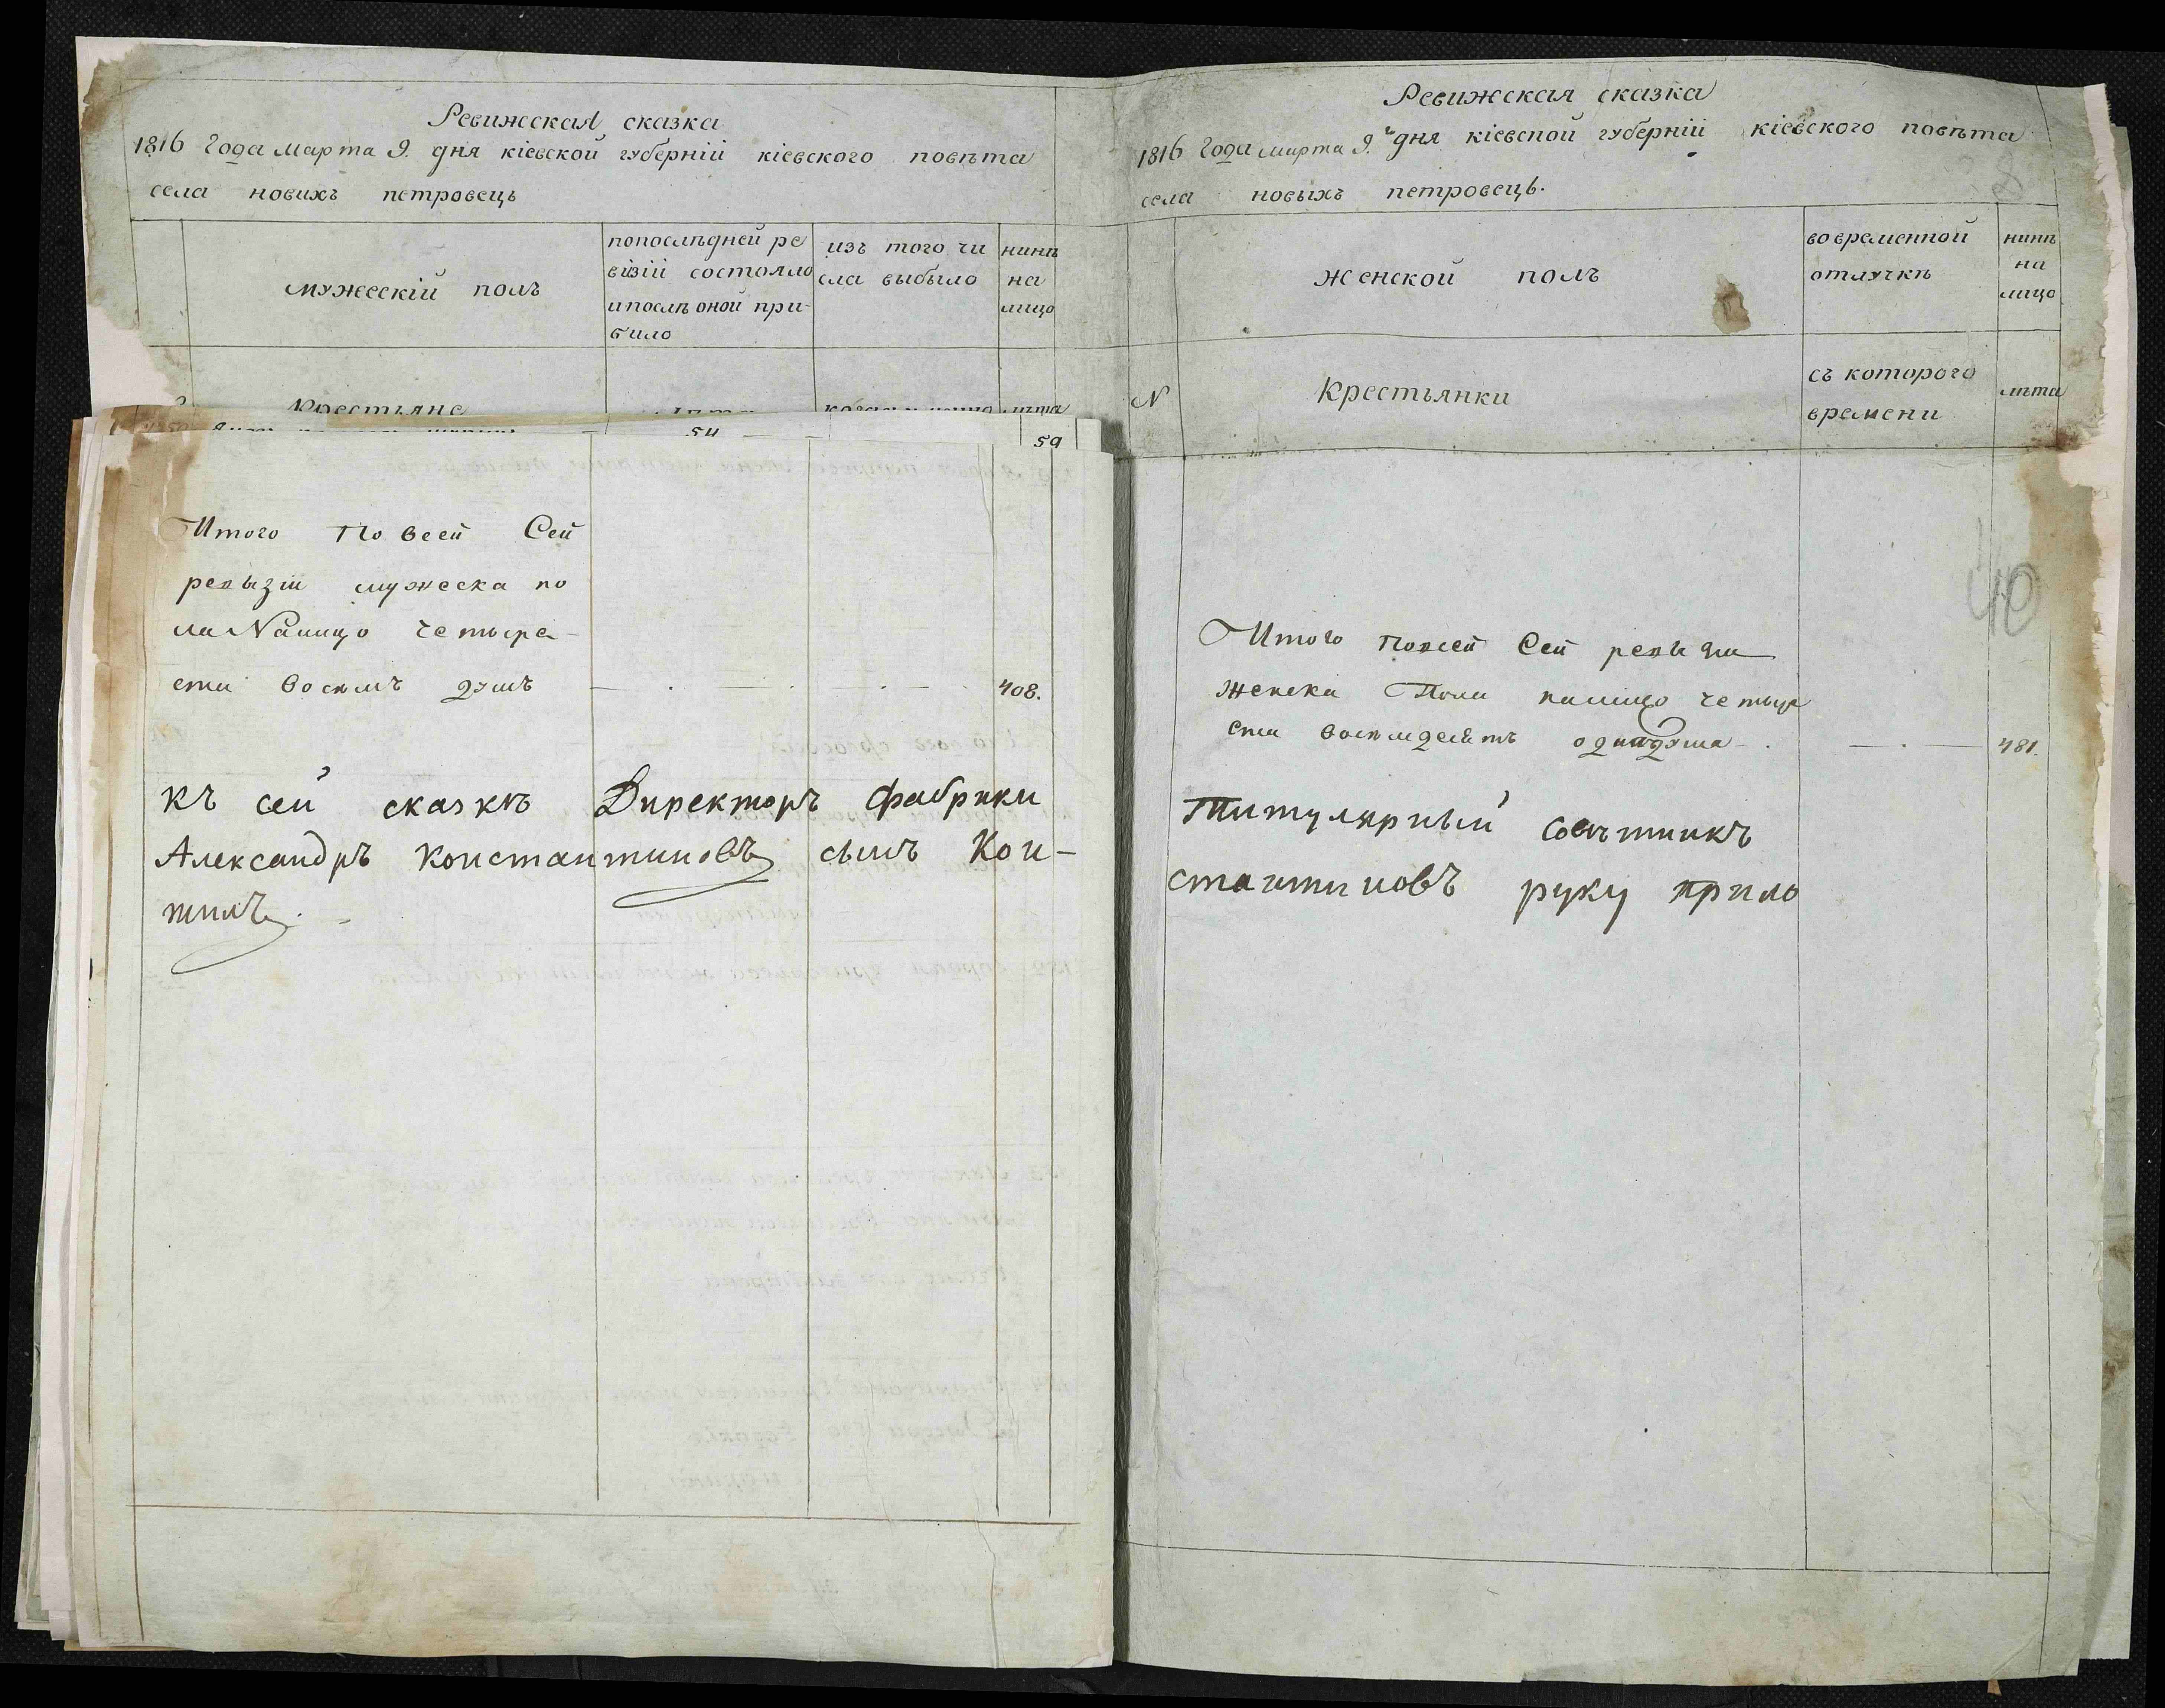 Ревижская сказка
1816 Года марта 9. дня кіевской губерніи кіевского повѣта
села новихъ петровець
мужескій полъ
попослѣдней ре
візіи состояло
ипослѣ оной при-
било
изъ того чи
сла выбыло
нинѣ
на
лицо
Крестьяне
лѣта
54 59
Итого По Всей Сей
ревызіи мужеска по
ла Налицо четыре-
ста восемъ душъ 408.
Къ сей сказкѣ Директоръ фабрики
Александръ Константиновъ сынъ Кон-
Ревижская сказка
1816 Года марта 9.го дня кіевской губерніи кіевского повѣта
села новыхъ петровець.
женской полъ
вовременной
отлучкѣ
нинѣ
на
лицо
N
Крестьянки
съ которого
времени
лѣта
40
Итого Повсей Сей ревызіи
женска Пола налицо четыре
ста восемдесятъ однадуша 481.
Титулярный совѣтникъ
стантиновъ руку прило